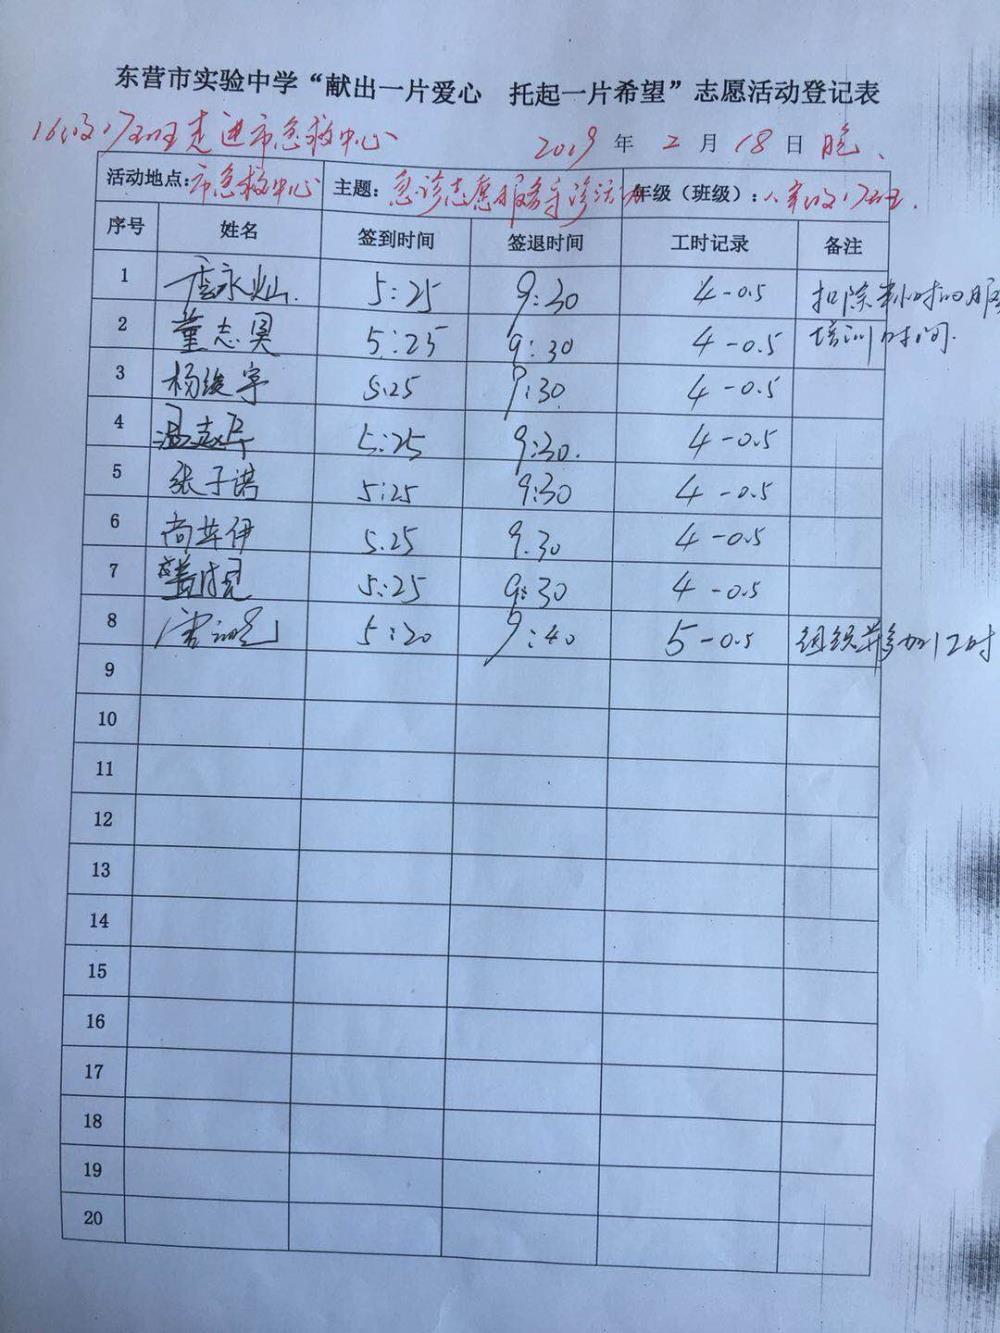 东营市实验中学“献出一片爱心 托起一片希望”志愿活动登记表
16级17班走进市急救中心 2019年2月18日晚.
活动地点:市急救中心 主题:急诊志愿服务导诊活动 年级（班级）:17班.
序号 姓名 签到时间 签退时间 工时记录 备注
1 永灿. 5:25 9:30 4-0.5 扣除半小时的服
2 董志昊 5:25 9:30 4-0.5 培训时间.
3 杨俊宇 5:25 9:30 4-0.5
4 5:25 9:30. 4-0.5
5 张子诺 5:25 9:30 4-0.5
6 尚 伊 5.25 9.30 4-0.5
7 5:25 9:30 4-0.5
8 5:20 9:40 5-0.5 组织并参加1工时
9
10
11
12
13
14
15
16
17
18
19
20